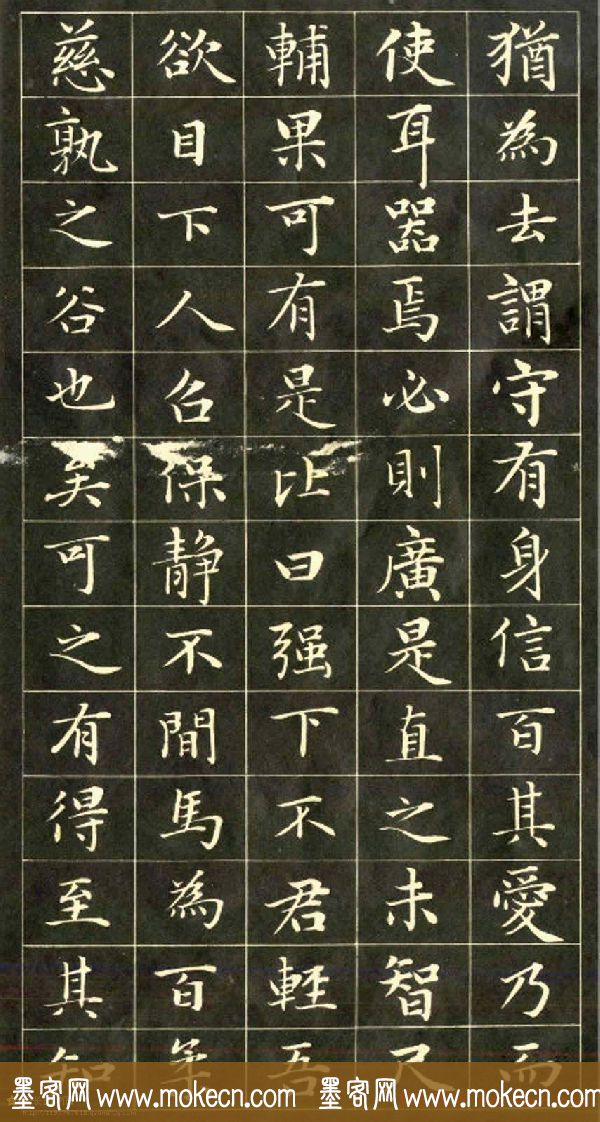 猶為去謂守有身信百其愛乃而
使耳器焉必則廣是直之未智
輔果可有是比曰强下不君輕吾
欲目下人召保静不間馬為百
慈孰之谷也矣可之有得至其知
墨客网 www.mokecn.com 墨客网 www.mokecn.com